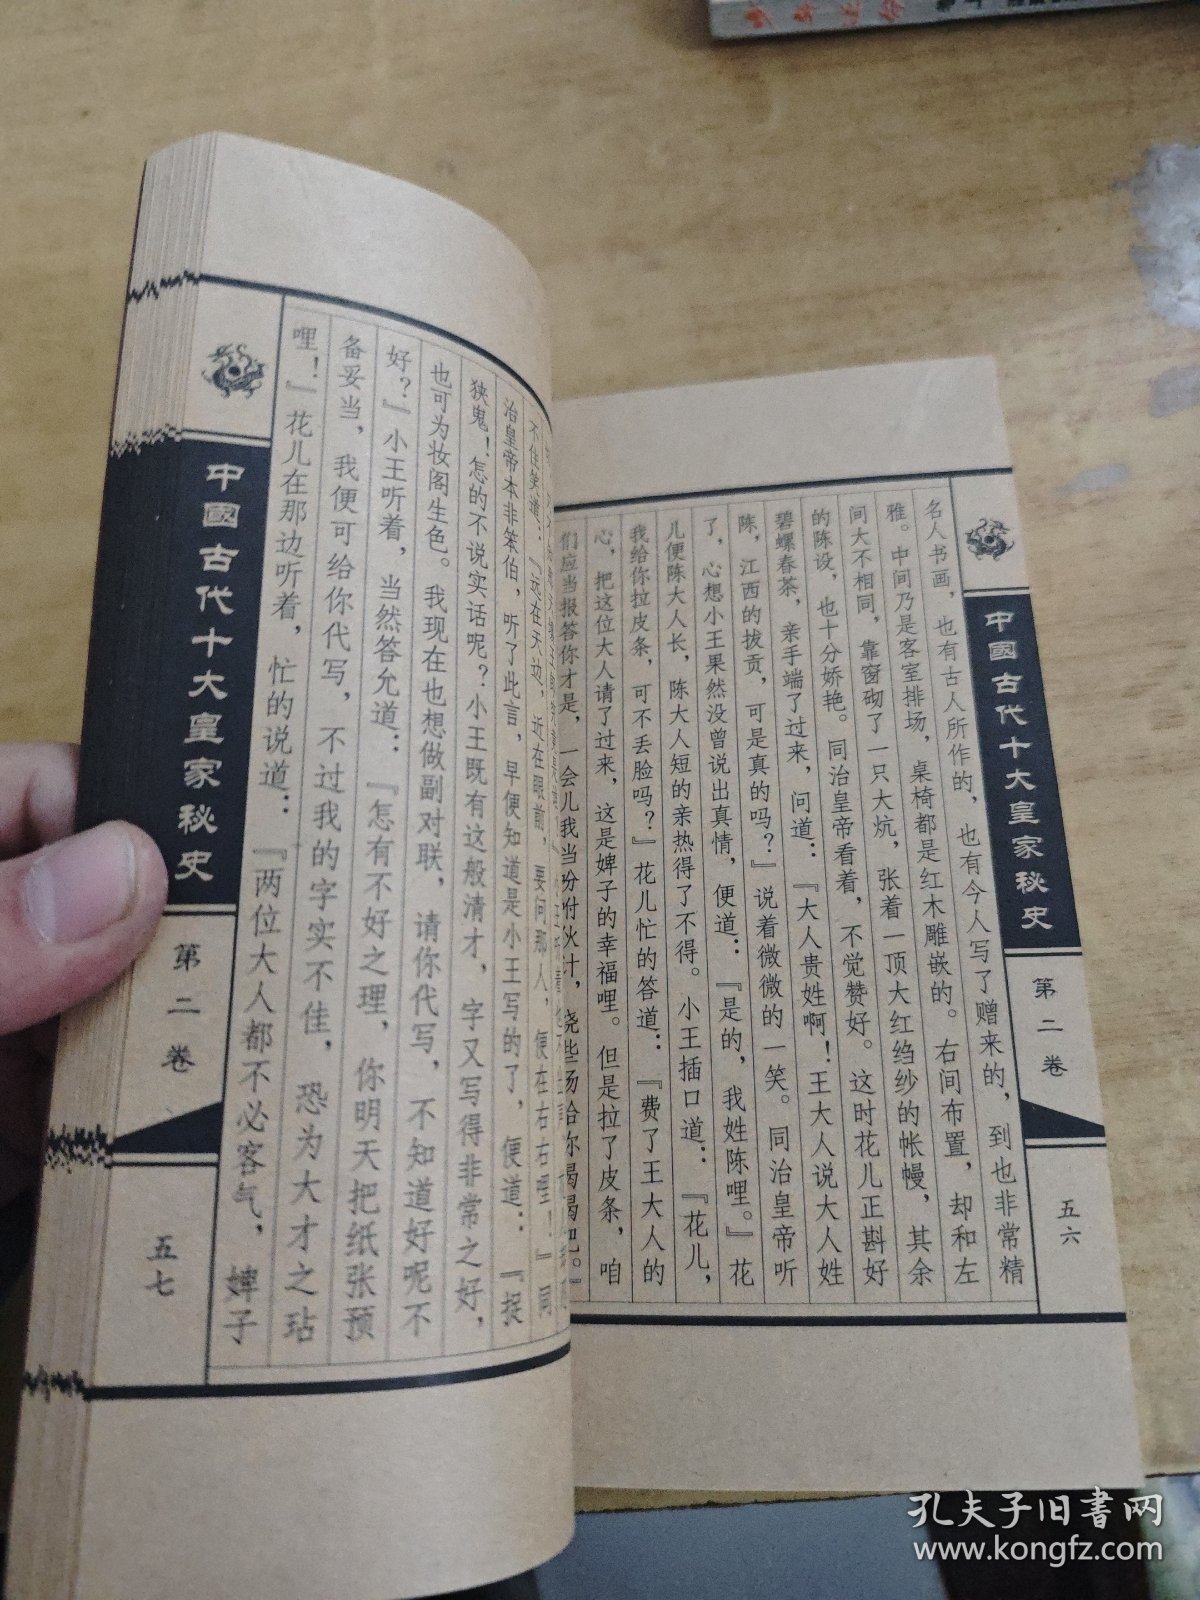 中國古代十大皇家秘史
第二卷
五六
名人书画，也有古人所作的，也有今人写了赠来的，到也非常精
雅。中间乃是客室排场，桌椅都是红木雕嵌的。右间布置，却和左
间大不相同，靠窗砌了一只大炕，张着一顶大红绉纱的帐幔，其余
的陈设，也十分娇艳。同治皇帝看着，不觉赞好。这时花儿正斟好
碧螺春茶，亲手端了过来，问道：『大人贵姓啊！王大人说大人姓
陈，江西的拔贡，可是真的吗？』说着微微的一笑。同治皇帝听
了，心想小王果然没曾说出真情，便道：『是的，我姓陈哩。』花
儿便陈大人长，陈大人短的亲热得了不得。小王插口道：『花儿，
我给你拉皮条，可不丢脸吗？』花儿忙的答道：『费了王大人的
心，把这位大人请了过来，这是婢子的幸福哩。但是拉了皮条，咱
们应当报答你才是，一会儿我当吩咐伙计，烧些汤给你喝喝吧。』
不住笑道：『远在天边，近在眼前，要问那人，便在右右哩！』同
治皇帝本非笨伯，听了此言，早便知道是小王写的了，便道：『捉
狭鬼！怎的不说实话呢？小王既有这般清才，字又写得非常之好，
也可为妆阁生色。我现在也想做副对联，请你代写，不知道好呢不
好？』小王听着，当然答允道：『怎有不好之理，你明天把纸张预
备妥当，我便可给你代写，不过我的字实不佳，恐为大才之玷
哩！』花儿在那边听着，忙的说道：『两位大人都不必客气，婢子
中國古代十大皇家秘史
第二卷
五七
孔夫子旧书网
www.kongfz.com